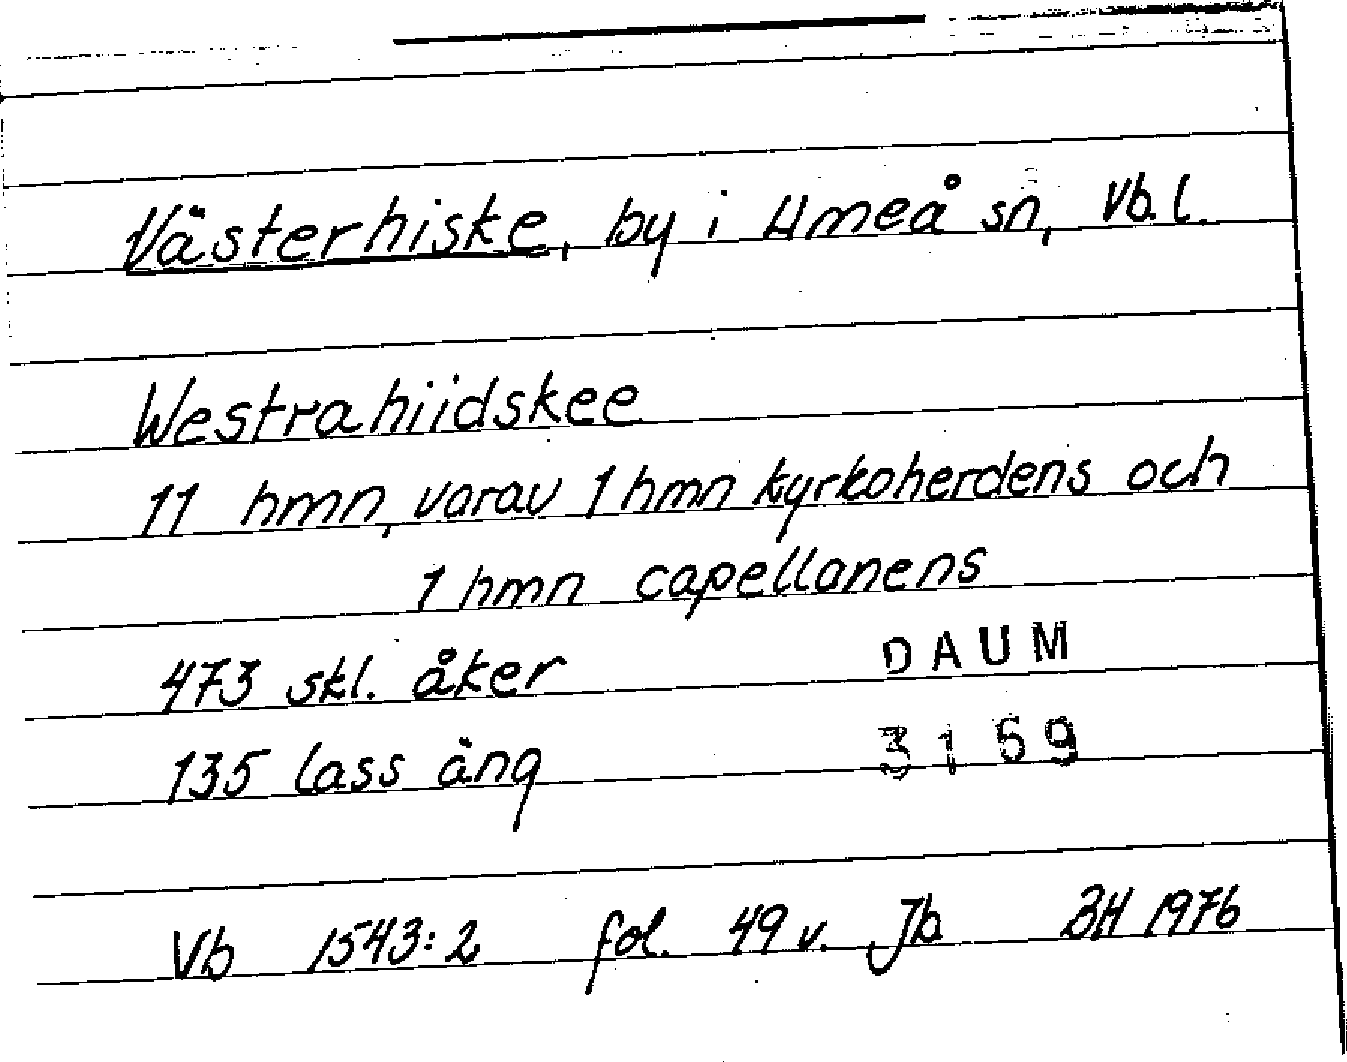 Västerhiske, by i Umeå sn, Vb. l.
Westrahiidskee
11 hmn, varav 1 hmn kyrkoherdens och
1 hmn capellanens
473 skl. åker
DAUM
135 lass äng
3159
Vb 1543:2 fol. 49 v. Jb BH 1976